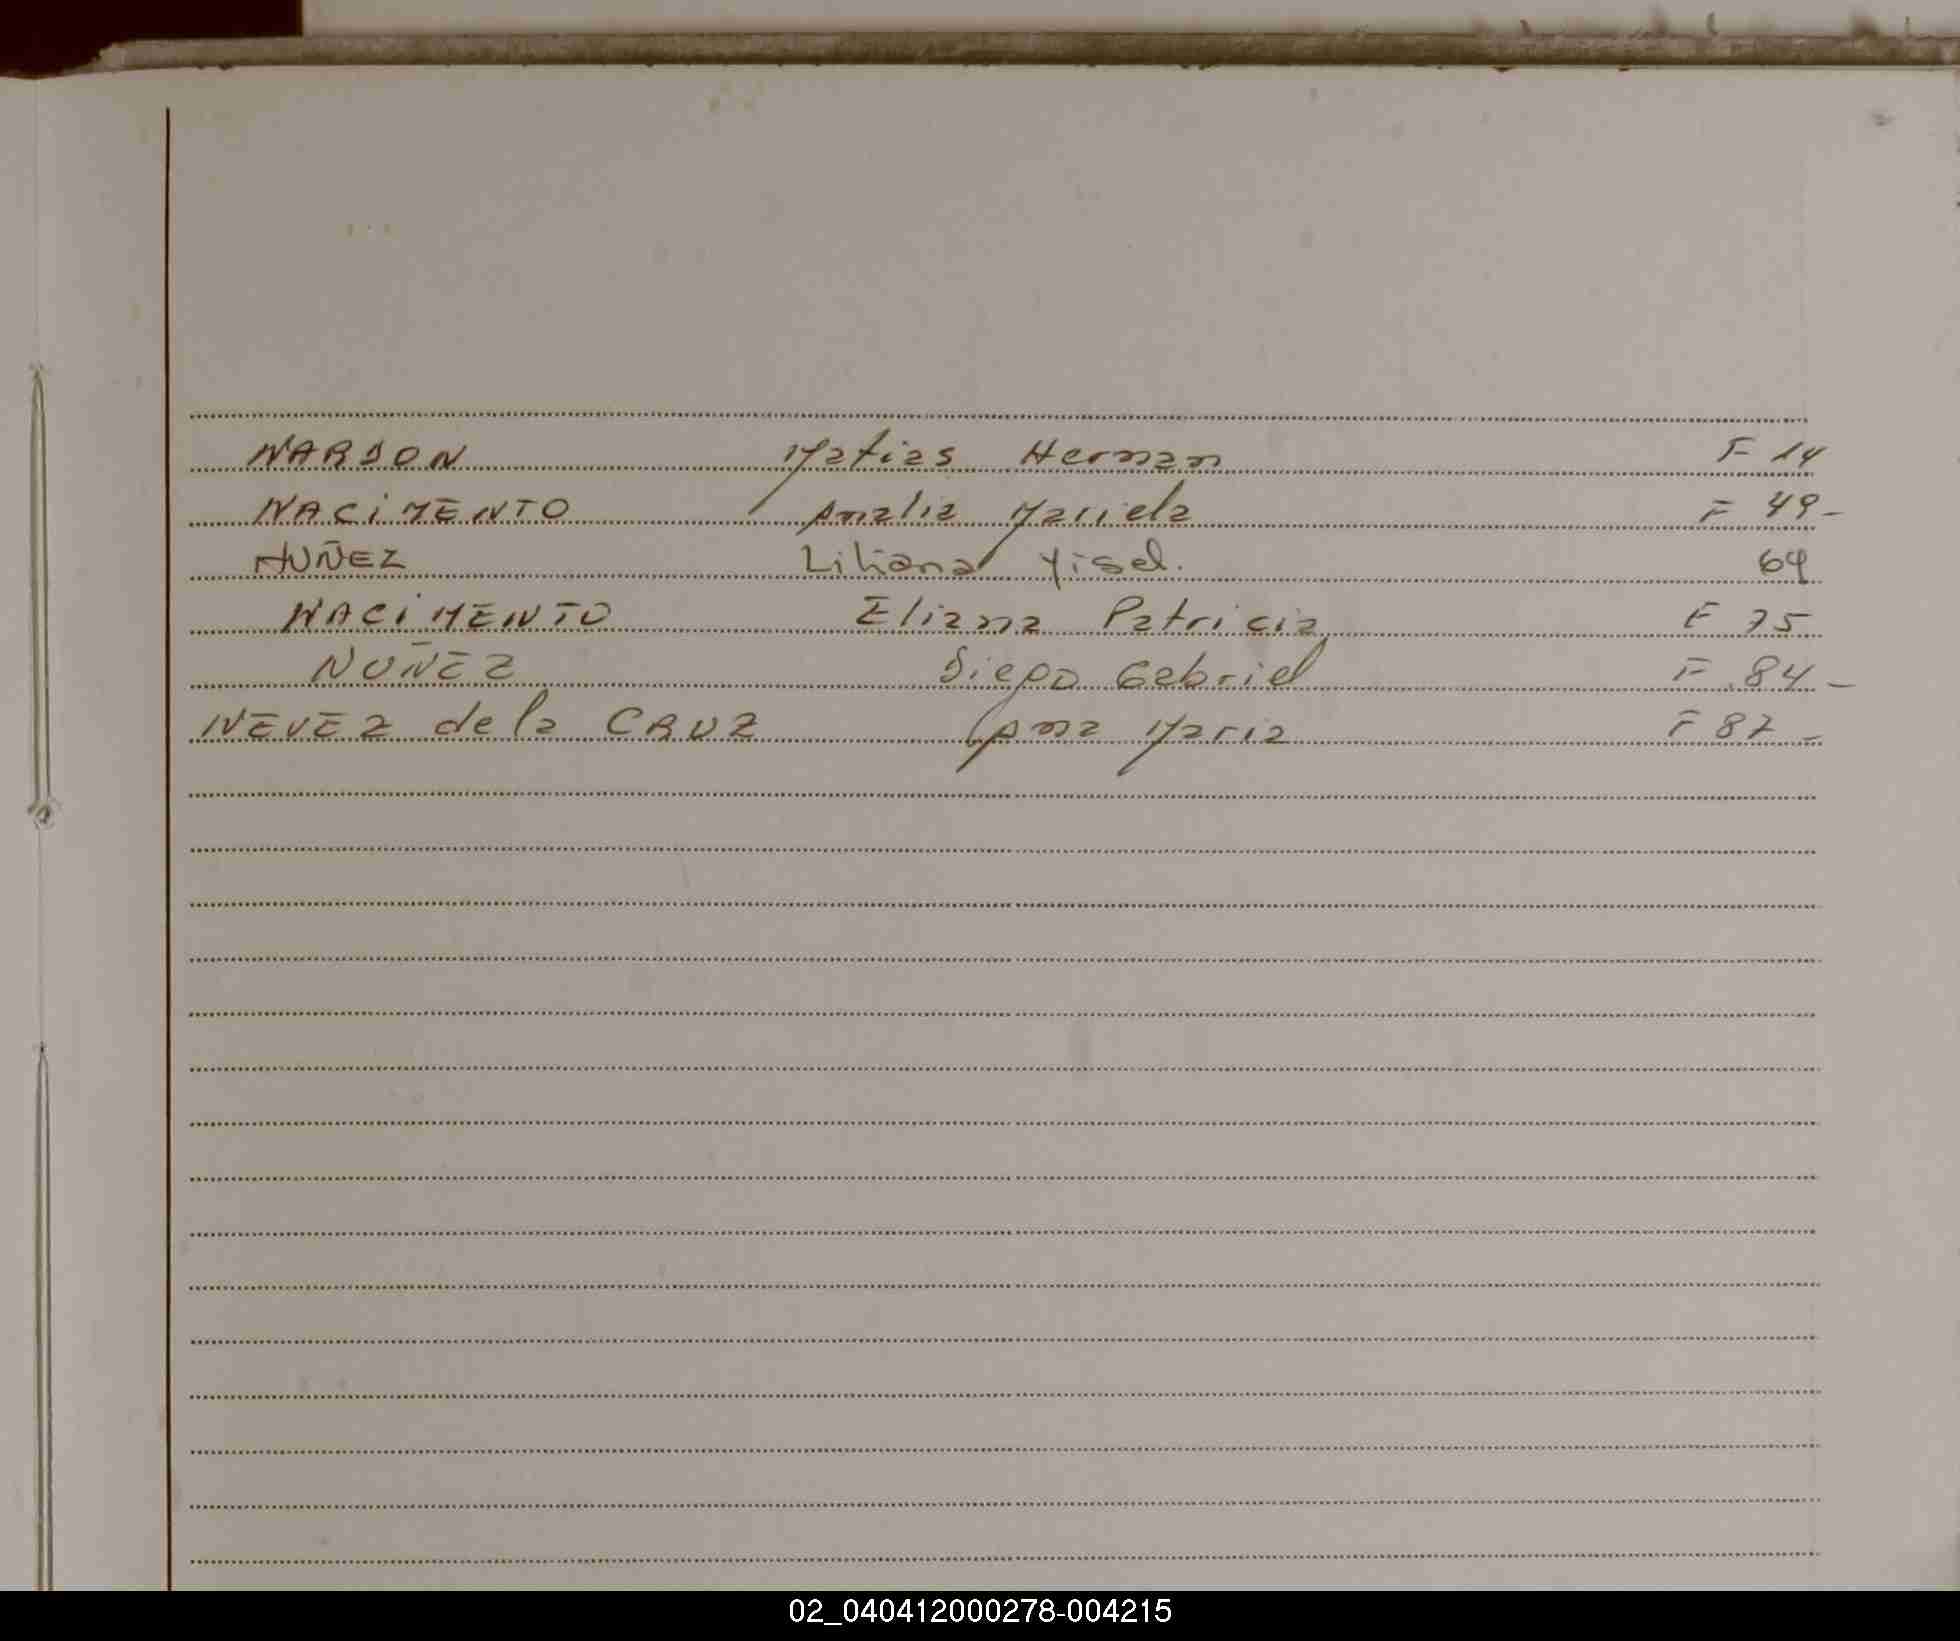 NARDON Matias Hernan F 14
NACiMENTO Analia Mariela F 49-
NUÑEZ Liliana Yisel. 64
NACiMENTO Eliana Patricia F 75
NUÑEZ Diego Gabriel F 84-
NEVEZ de la CRUZ Ana Maria F 87-
02_040412000278-004215